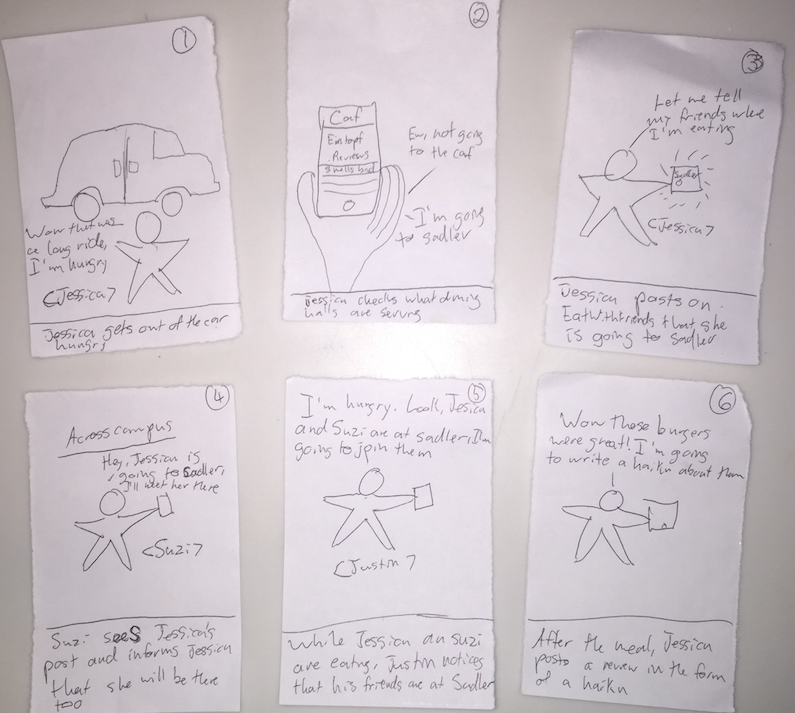 1
Wow that was
a long ride,
I'm hungry
<Jessica>
Jessica gets out of the car
hungry
2
Caf
Reviews
smells bad
Ew, not going
to the caf
I'm going
to sadler
Jessica checks what dining
halls are serving
3
Let me tell
my friends where
I'm eating
Sadler
<Jessica>
Jessica posts on
EatWithfriends that she
is going to Sadler
4
Across campus
Hey, Jessica is
going to Sadler,
I'll meet her there
<Suzi>
Suzi sees Jessica's
post and informs Jessica
that she will be there
too
5
I'm hungry. Look, Jesica
and Suzi are at sadler, I'm
going to join them
<Justin>
While Jessica an suzi
are eating, Justin notices
that his friends are at Sadler
6
Wow those burgers
were great! I'm going
to write a haiku about them
After the meal, Jessica
posts a review in the form
of a haiku